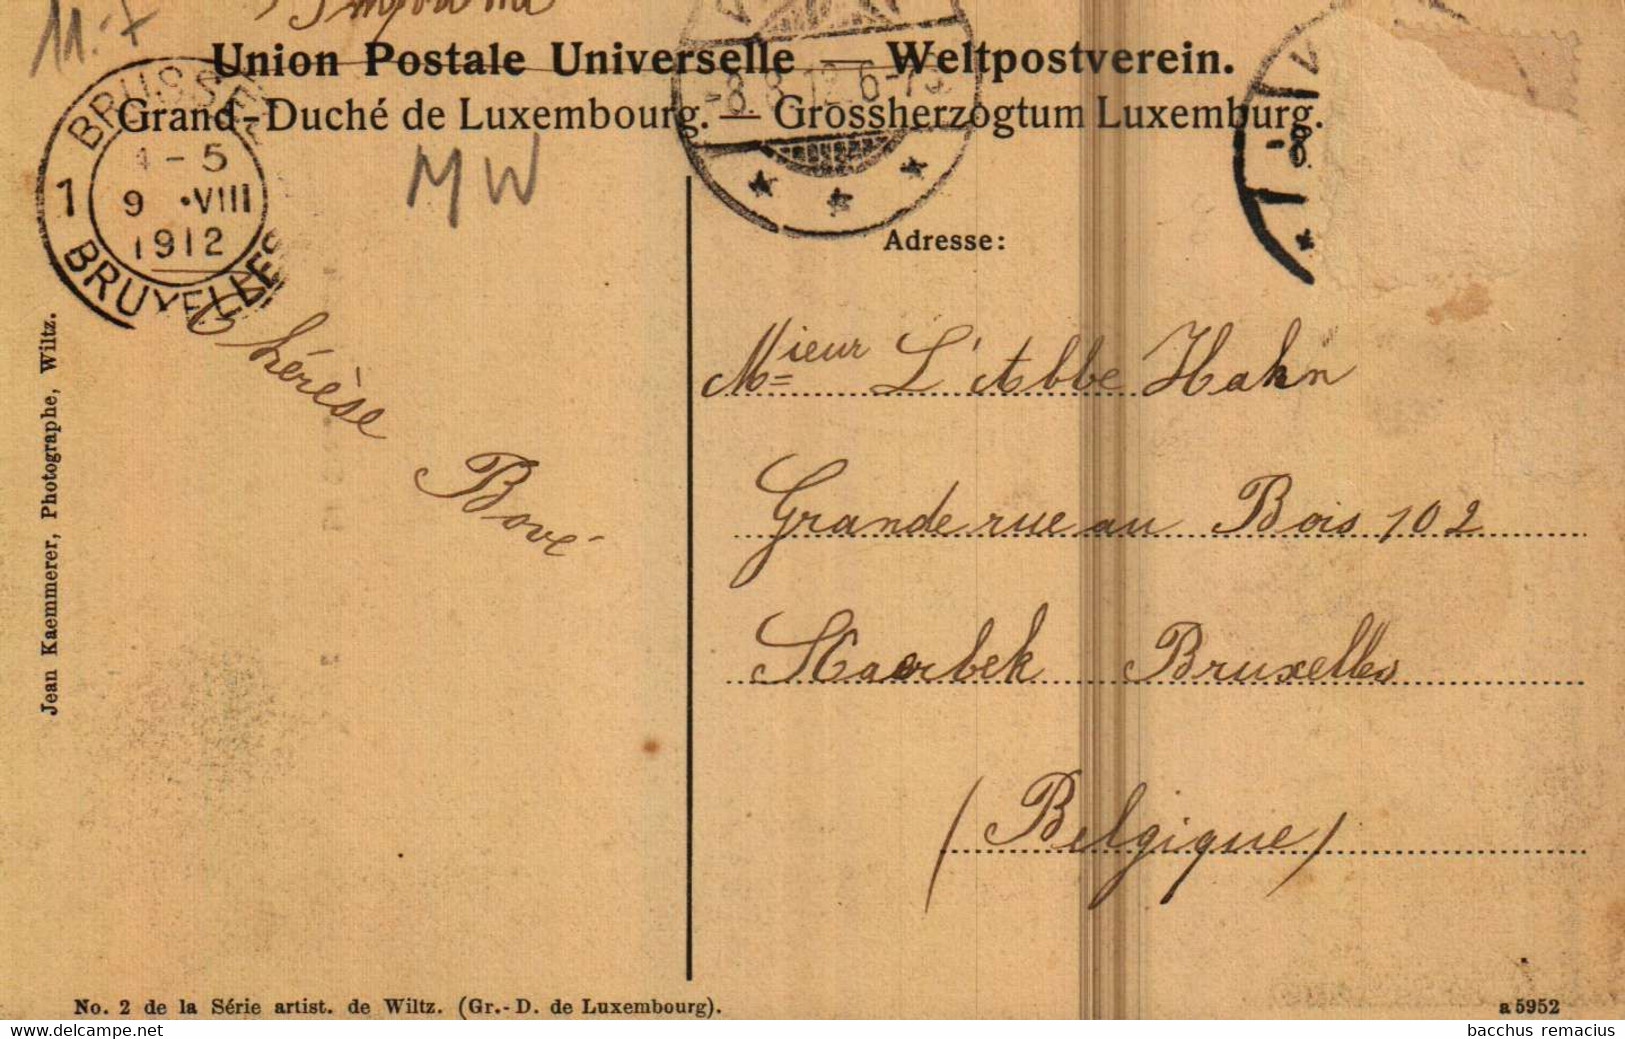 11.-7
Imprimé
Union Postale Universelle — Weltpostverein.
Grand-Duché de Luxembourg. — Grossherzogtum Luxemburg.
BRUSSEL
4 - 5
1
9 •VIII
1912
BRUXELLES
-8.8.12.6-7S.
-8.
M W
Adresse:
Thérèse
Bové
Mieur L'Abbe Hahn
Grande rue au Bois 102
Scaerbek Bruxelles
(Belgique)
Jean Kaemmerer, Photographe, Wiltz.
No. 2 de la Série artist. de Wiltz. (Gr.-D. de Luxembourg).
a 5952
www.delcampe.net
bacchus remacius